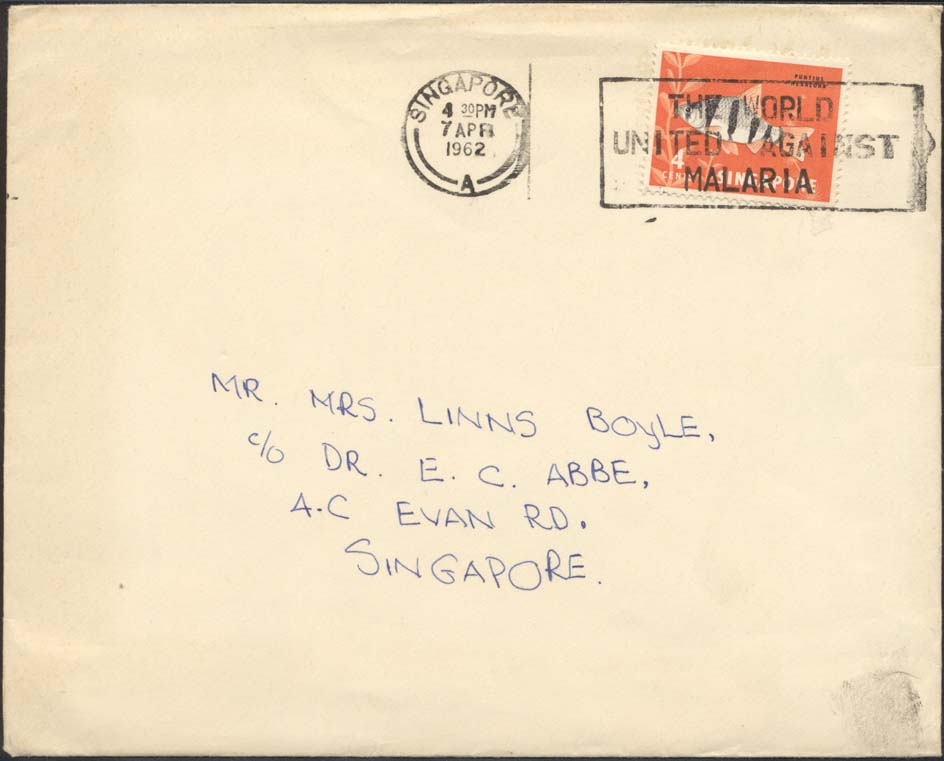 SINGAPORE
4 30PM
7 APR
1962
A
PUNTIUS
THE WORLD
UNITED AGAINST
MALARIA
4
CENTS SINGAPORE
MR. MRS. LINNS BOYLE,
c/o DR. E. C. ABBE,
4.C EVAN RD.
SINGAPORE.